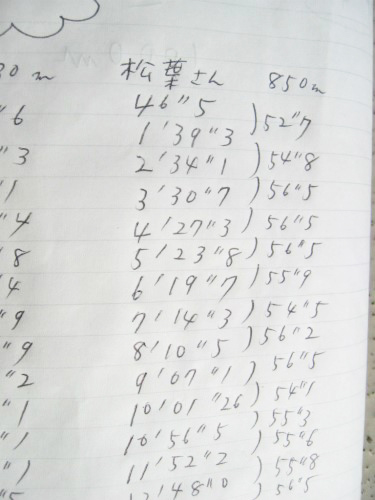 30m 松葉さん 850m
"6 46"5
1'39"3 )52"7
"3 2'34"1 )54"8
"1 3'30"7 )56"5
"4 4'27"3 )56"5
"8 5'23"8 )56"5
"4 6'19"7 )55"9
"9 7'14"3 )54"5
"9 8'10"5 )56"2
"2 9'07"1 56"5
"1 10'01"26 )54"1
"1 10'56"5 )55"3
"1 11'52"2 )55"6
"5 48"0 )55"8
56"5